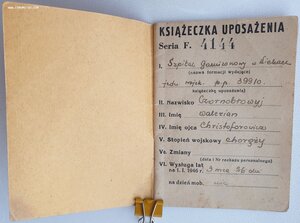 KSIĄŻECZKA UPOSAŻENIA
Seria F. 4144
I. Szpital garnizonowy w Kielcach
(nazwa formacji wydającej)
p.p. 39910
książeczkę uposażenia)
II. Nazwisko Czornobrowyj
III. Imię Walerian
IV. Imię ojca Christoforowicz
V. Stopień wojskowy chorąży
Vc. Zmiany
(data i Nr rozkazu personalnego)
VI. Wysługa lat
na 1. I. 1946 r. 3 mce 26 dni
na dzień mob.